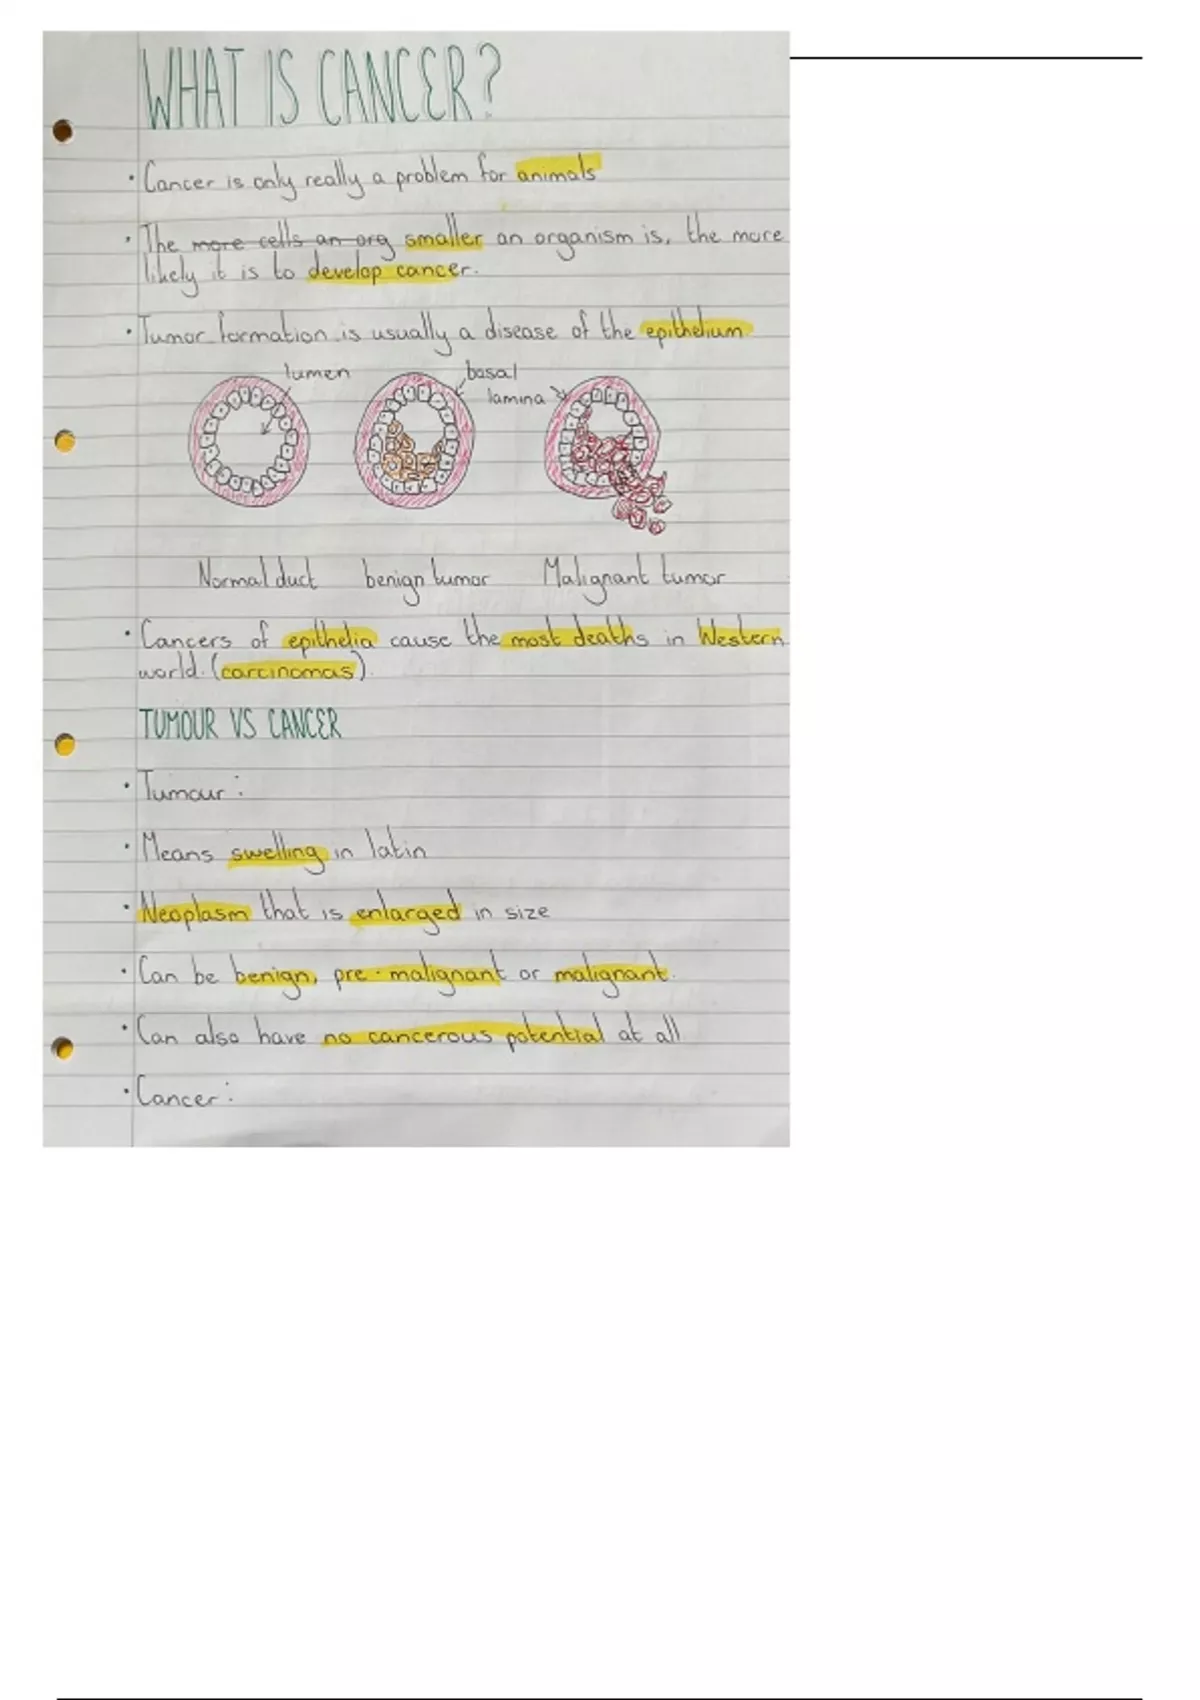 WHAT IS CANCER?
• Cancer is only really a problem for animals
• The more cells an org smaller an organism is, the more
likely it is to develop cancer.
• Tumor formation is usually a disease of the epithelium
lumen
basal
lamina
Normal duct benign tumor Malignant tumor
• Cancers of epithelia cause the most deaths in Western
world. (carcinomas)
TUMOUR VS CANCER
• Tumour:
• Means swelling in latin
• Neoplasm that is enlarged in size
• Can be benign, pre-malignant or malignant.
• Can also have no cancerous potential at all
• Cancer: